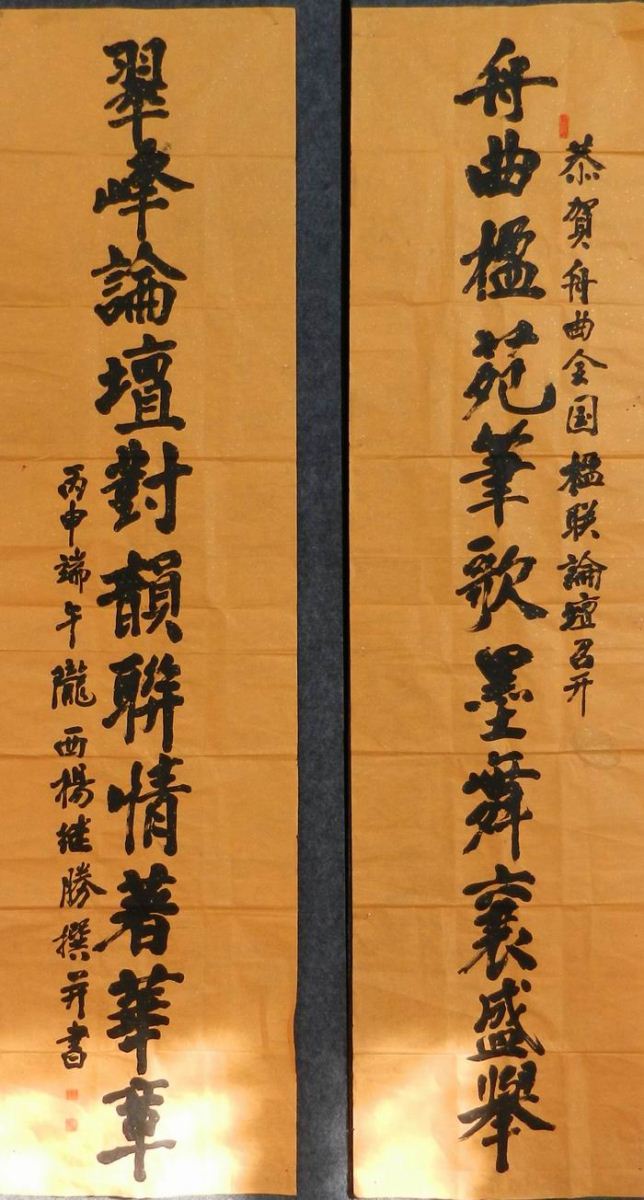 恭賀舟曲全国楹联論壇召开
舟曲楹苑筆歌墨舞襄盛舉
翠峰論壇對韻聯情著華章
丙申端午隴西楊继勝撰并書